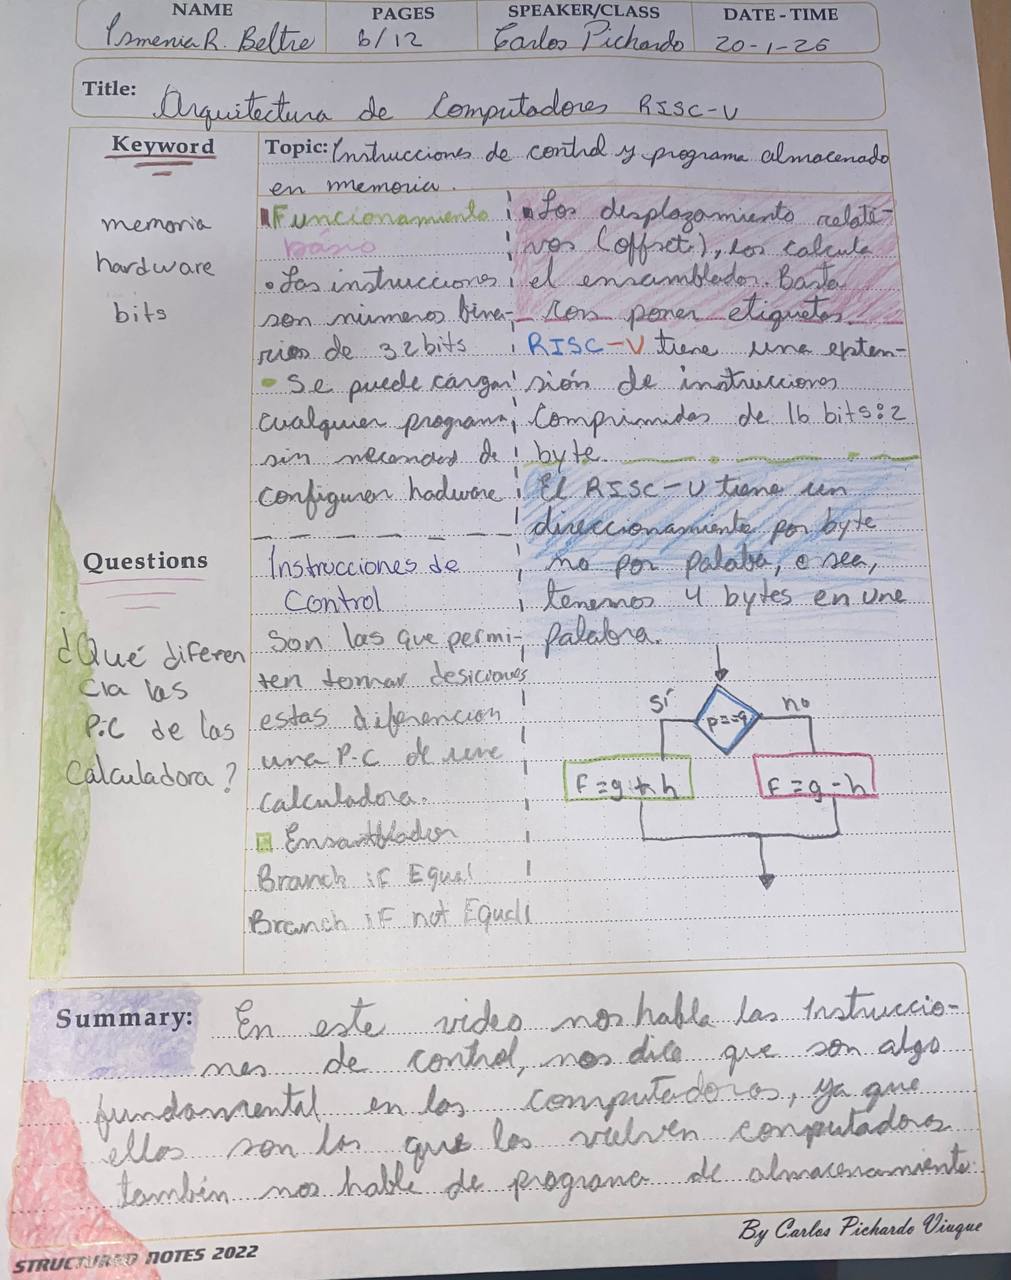 NAME
PAGES
SPEAKER/CLASS
DATE - TIME
Ismenia R. Beltre
6/12
Carlos Pichardo
20-1-26
Title: Arquitectura de Computadores RISC-V
Keyword
memoria
hardware
bits
Questions
¿Qué diferen
cia las
P.C de las
Calculadora?
Topic: Instrucciones de control y programa almacenado
en memoria.
Funcionamiento
básio
• Las instrucciones
son números bina-
rios de 32 bits
• Se puede cargar
cualquier programa
sin necesidad de
configurar hadware
Instrucciones de
Control
Son las que permi-
ten tomar desiciones
estas diferencian
una P.C de una
calculadora.
Ensamblador
Branch if Equal
Branch if not Equall
Los desplazamiento relati-
vos (offset), los calcula
el ensamblador. Basta
con poner etiquetas
RISC-V tiene una exten-
sión de instrucciones
Comprimidas de 16 bits: 2
byte.
El RISC-V tiene un
direccionamiento por byte
no por palaba, o sea,
tenemos 4 bytes en une
palabra.
sí
p==q
no
f=g+h
f=g-h
Summary: En este video nos habla las Instruccio-
nes de control, nos dice que son algo
fundamental en las computadoras, ya que
ellas son las que las vuelven computadoras
tambén nos habla de programa de almacenamiento.
By Carlos Pichardo Viuque
STRUCTURED NOTES 2022